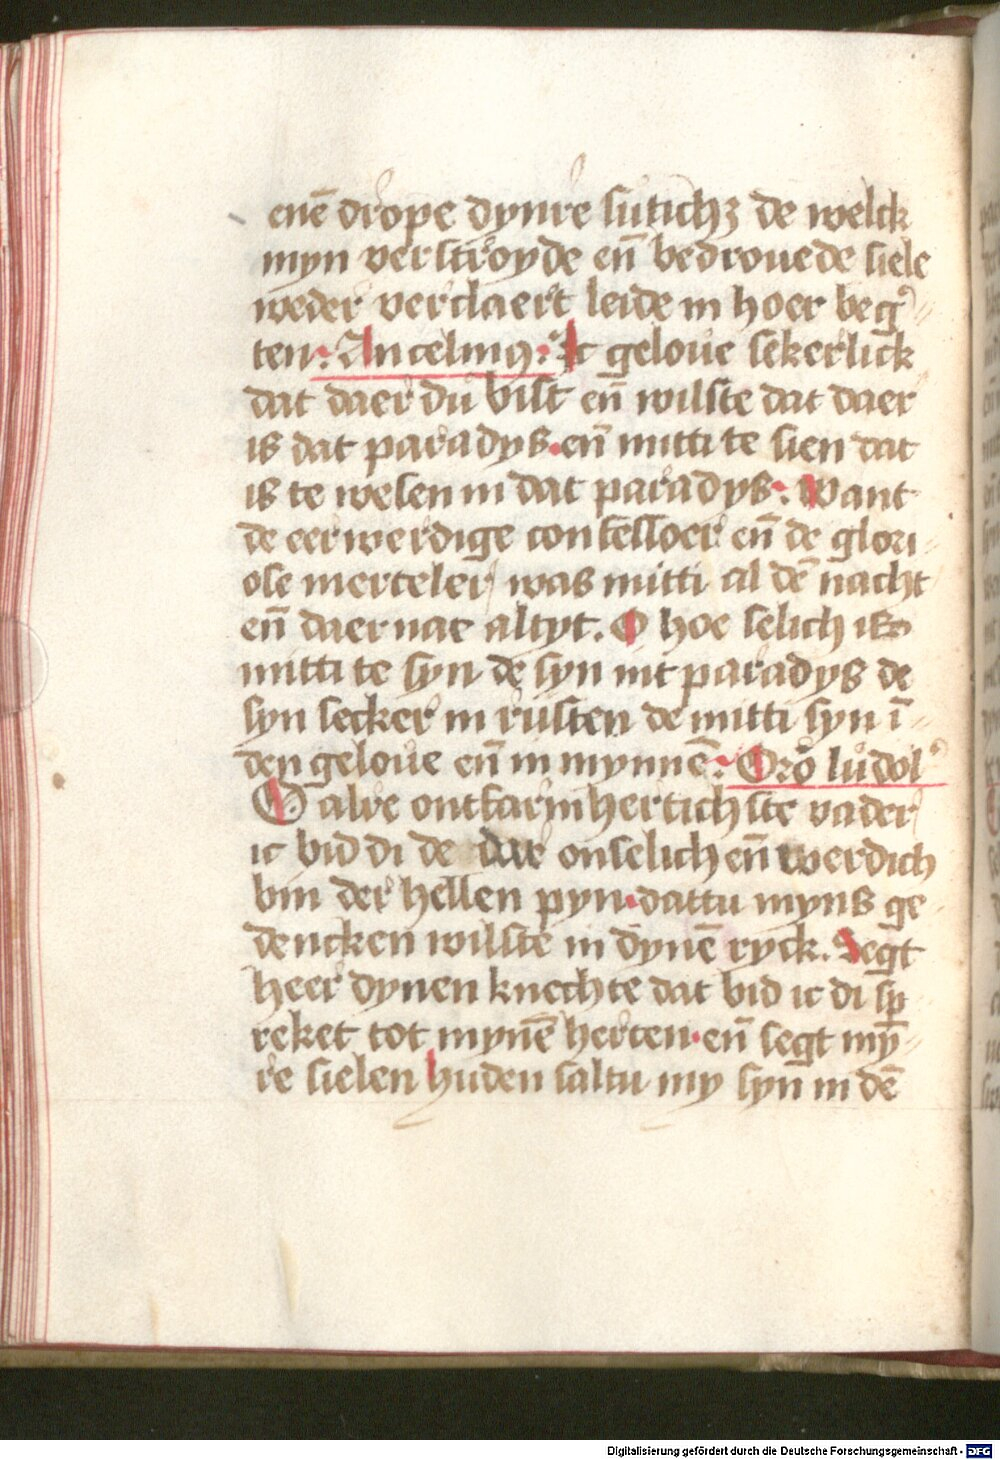 enē drope dynre suticħz de welck
myn verstroyde eñ bedrouede siele
weder verclaert leide in hoer beg
ten: Ancelmꝰ: Ic geloue sekerlick
dat daer du bist eñ wilste dat daer
is dat paradys. eñ mitti te sien dat
is te wesen in dat paradys: Want
de eerwerdige confessoer eñ de glori-
ose merteler was mitti al dē nacht
eñ daer nae altyt. O hoe selich is
mitti te syn de syn int paradys de
syn secker in rusten de mitti syn ī
den geloue eñ in mynnē: Orō ludolꝰ
O alre ontfarmhertichste vader
ic bid di de dar onselich eñ werdich
bin der hellen pyn. dattu myns ge
dencken wilste in dynē ryck. Segt
heer dynen knechte dat bid ic di sp
reket tot mynē herten. eñ segt my̅-
re sielen huden saltu my syn in dē
Digitalisierung gefördert durch die Deutsche Forschungsgemeinschaft - DFG